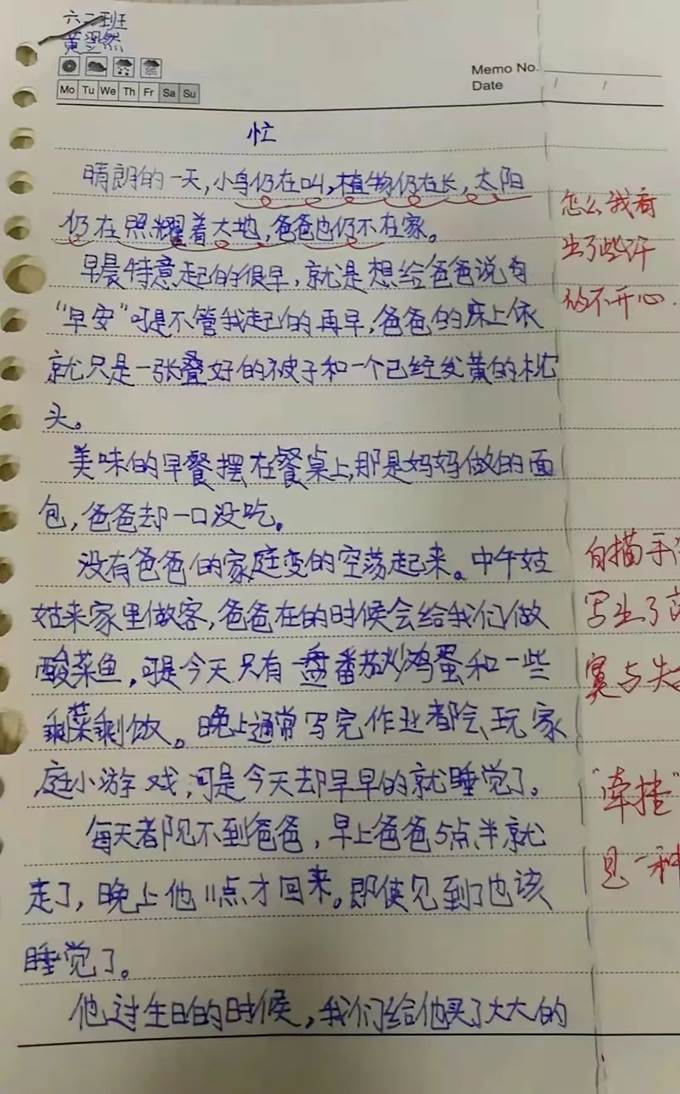 六二班
黄翌然
Memo No.
Date / /
Mo Tu We Th Fr Sa Su
忙
晴朗的一天,小鸟仍在叫,植物仍在长,太阳
仍在照耀着大地,爸爸也仍不在家。
早晨特意起的很早,就是想给爸爸说句
“早安”可是不管我起的再早,爸爸的床上依
就只是一张叠好的被子和一个已经发黄的枕
头。
美味的早餐摆在餐桌上,那是妈妈做的面
包,爸爸却一口没吃。
没有爸爸的家庭变的空荡起来。中午姑
姑来家里做客,爸爸在的时候会给我们做
酸菜鱼,可是今天只有一盘番茄炒鸡蛋和一些
剩菜剩饭。晚上通常写完作业都会玩家
庭小游戏,可是今天却早早的就睡觉了。
每天都见不到爸爸,早上爸爸5点半就
走了,晚上他11点才回来。即使见到了也该
睡觉了。
他过生日的时候,我们给他买了大大的
怎么我看
出了些许
的不开心.
白描手
写出了
寞与失
“牵挂”
见一种